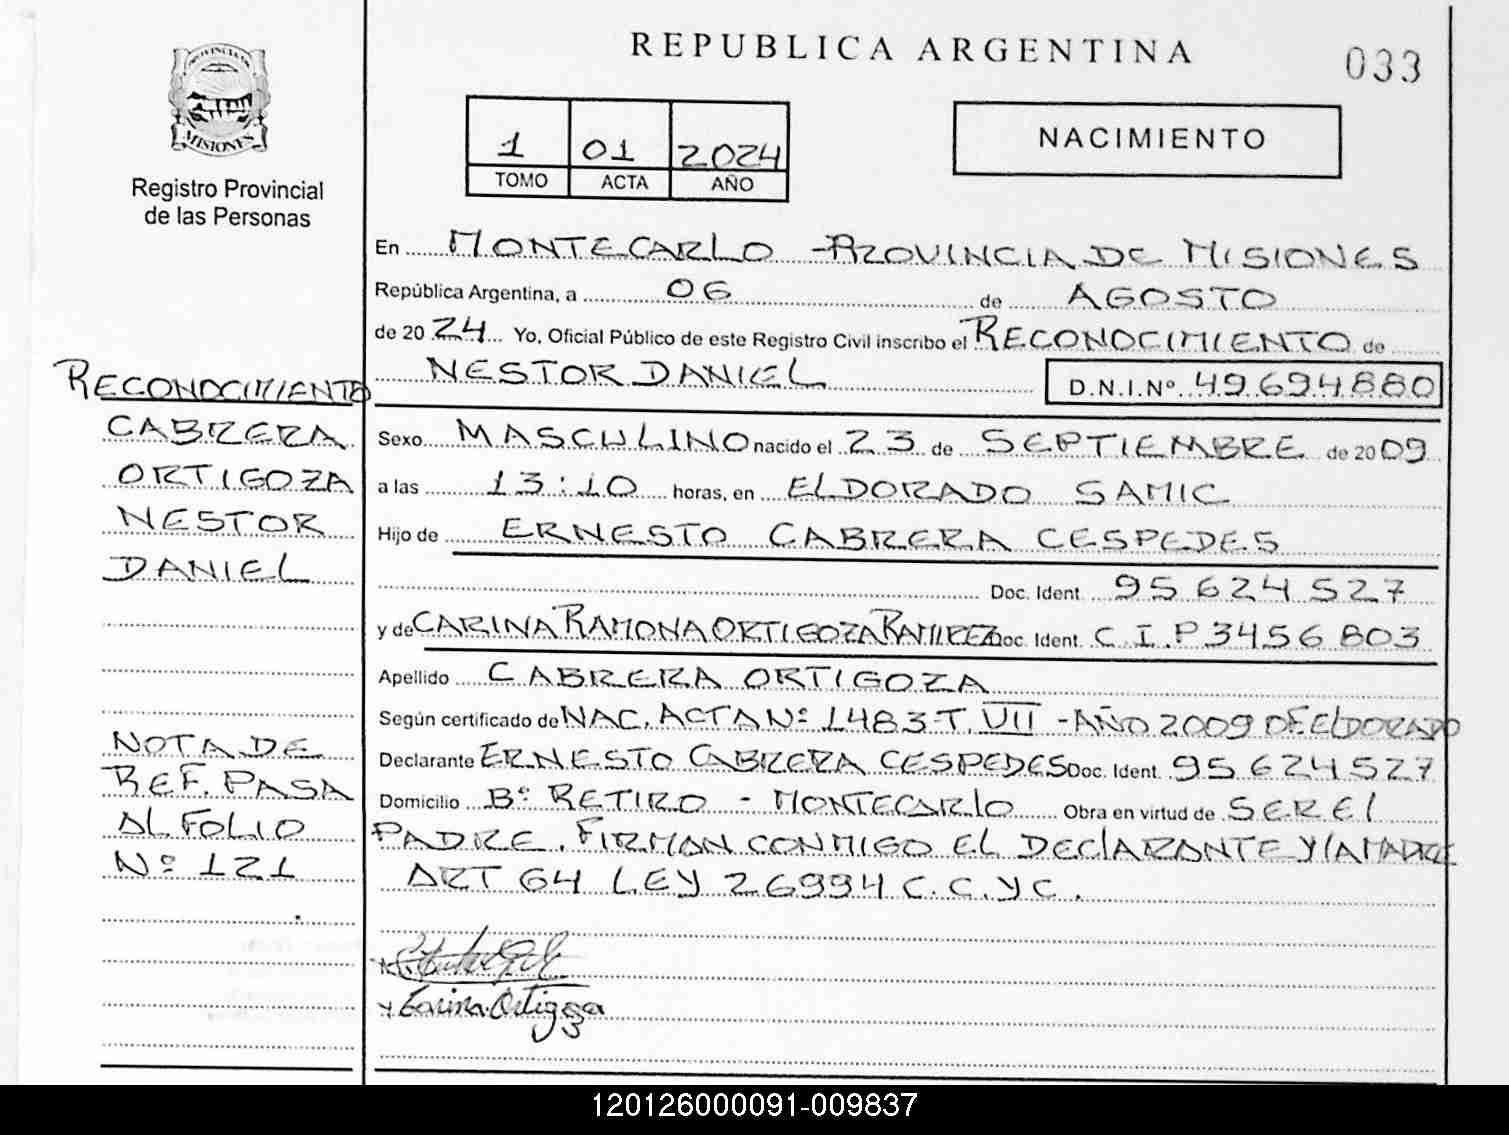 REPUBLICA ARGENTINA
033
PROVINCIA DE
MISIONES
Registro Provincial
de las Personas
1 01 2024
TOMO ACTA AÑO
NACIMIENTO
En MONTECARLO - PROVINCIA DE MISIONES
República Argentina, a 06 de AGOSTO
de 20 24 Yo, Oficial Público de este Registro Civil inscribo el RECONOCIMIENTO de
NESTOR DANIEL D.N.I.Nº 49.694.880
Sexo MASCULINO nacido el 23 de SEPTIEMBRE de 2009
a las 13:10 horas, en ELDORADO SAMIC
Hijo de ERNESTO CABRERA CESPEDES
Doc. Ident. 95624527
y de CARINA RAMONA ORTIGOZA RAMIREZ Doc. Ident. C.I.P 3456803
Apellido CABRERA ORTIGOZA
Según certificado de NAC. ACTA Nº 1483-T. VII - AÑO 2009 DE ELDORADO
Declarante ERNESTO CABRERA CESPEDES Doc. Ident. 95624527
Domicilio Bº RETIRO - MONTECARLO Obra en virtud de SER EL
PADRE. FIRMAN CONMIGO EL DECLARANTE Y LA MADRE
ART 64 LEY 26994 C.C.Y C.
Carina Ortigoza
RECONOCIMIENTO
CABRERA
ORTIGOZA
NESTOR
DANIEL
NOTA DE
REF. PASA
AL FOLIO
Nº 121
120126000091-009837